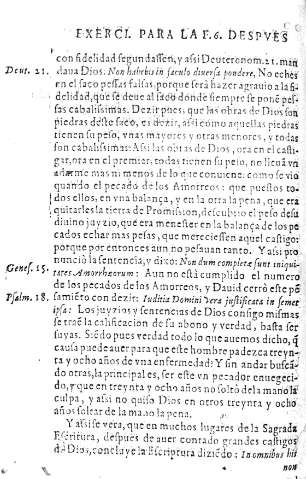 EXERCI. PARA LA F.6. DESPVES
con fidelidad segundassen, y assi Deuteronom. 21. man
Deut. 21. daua Dios. Non habebis in saculo diuersa pondere, No eches
en el saco pessas falsas, porque será hazer agrauio a la fi
delidad, que se deue al saco donde siempre se ponē pes-
sas cabalissimas. Dezir pues que las obras de Dios son
piedras deste saco, es dezir, assi como aquellas piedras
tienen su peso, vnas mayores y otras menores, y todas
son cabalissimas: Assi las obras de Dios, ora en el casti-
gar, ora en el premiar, todas tienen su peso, no lieuā vn
adarme mas ni menos de lo que conuiene. como se vio
quando el pecado de los Amorreos: que puestos to-
dos ellos, en vna balança, y en la otra la pena, que era
quitarles la tierra de Promission, descubrio el peso de su
diuino juyzio, que era menester en la balança de los pe
cados echar mas pesas, que mereciessen aquel castigo:
porque por entonces aun no pesauan tanto. Y assi pro
nunciò la sentencia, y dixo: Non dum complete sunt iniqui-
Genes. 15. tates Amorrheorum: Aun no está cumplido el numero
de los pecados de los Amorreos, y Dauid cerrò este pē
Psalm. 18. samiēto con dezir: Iuditia Domini vera justificata in semet
ipsa: Los juyzios y sentencias de Dios consigo mismas
se traē la calificacion de su abono y verdad, basta ser
suyas. Siēdo pues verdad todo lo que auemos dicho, q̄
causa puede auer para que este hombre padezca treyn-
ta y ocho años de vna enfermedad? Y sin andar buscā-
do otras, la principal es, ser este vn pecador enuegeci-
do, y que en treynta y ocho años no soltò de la mano la
culpa, y assi no quiso Dios en otros treynta y ocho
años soltar de la mano la pena.
Y assi se vera, que en muchos lugares de la Sagrada
Escritura, despues de auer contado grandes castigos
de Dios, concluye la Escriptura diziēdo: In omnibus his
non